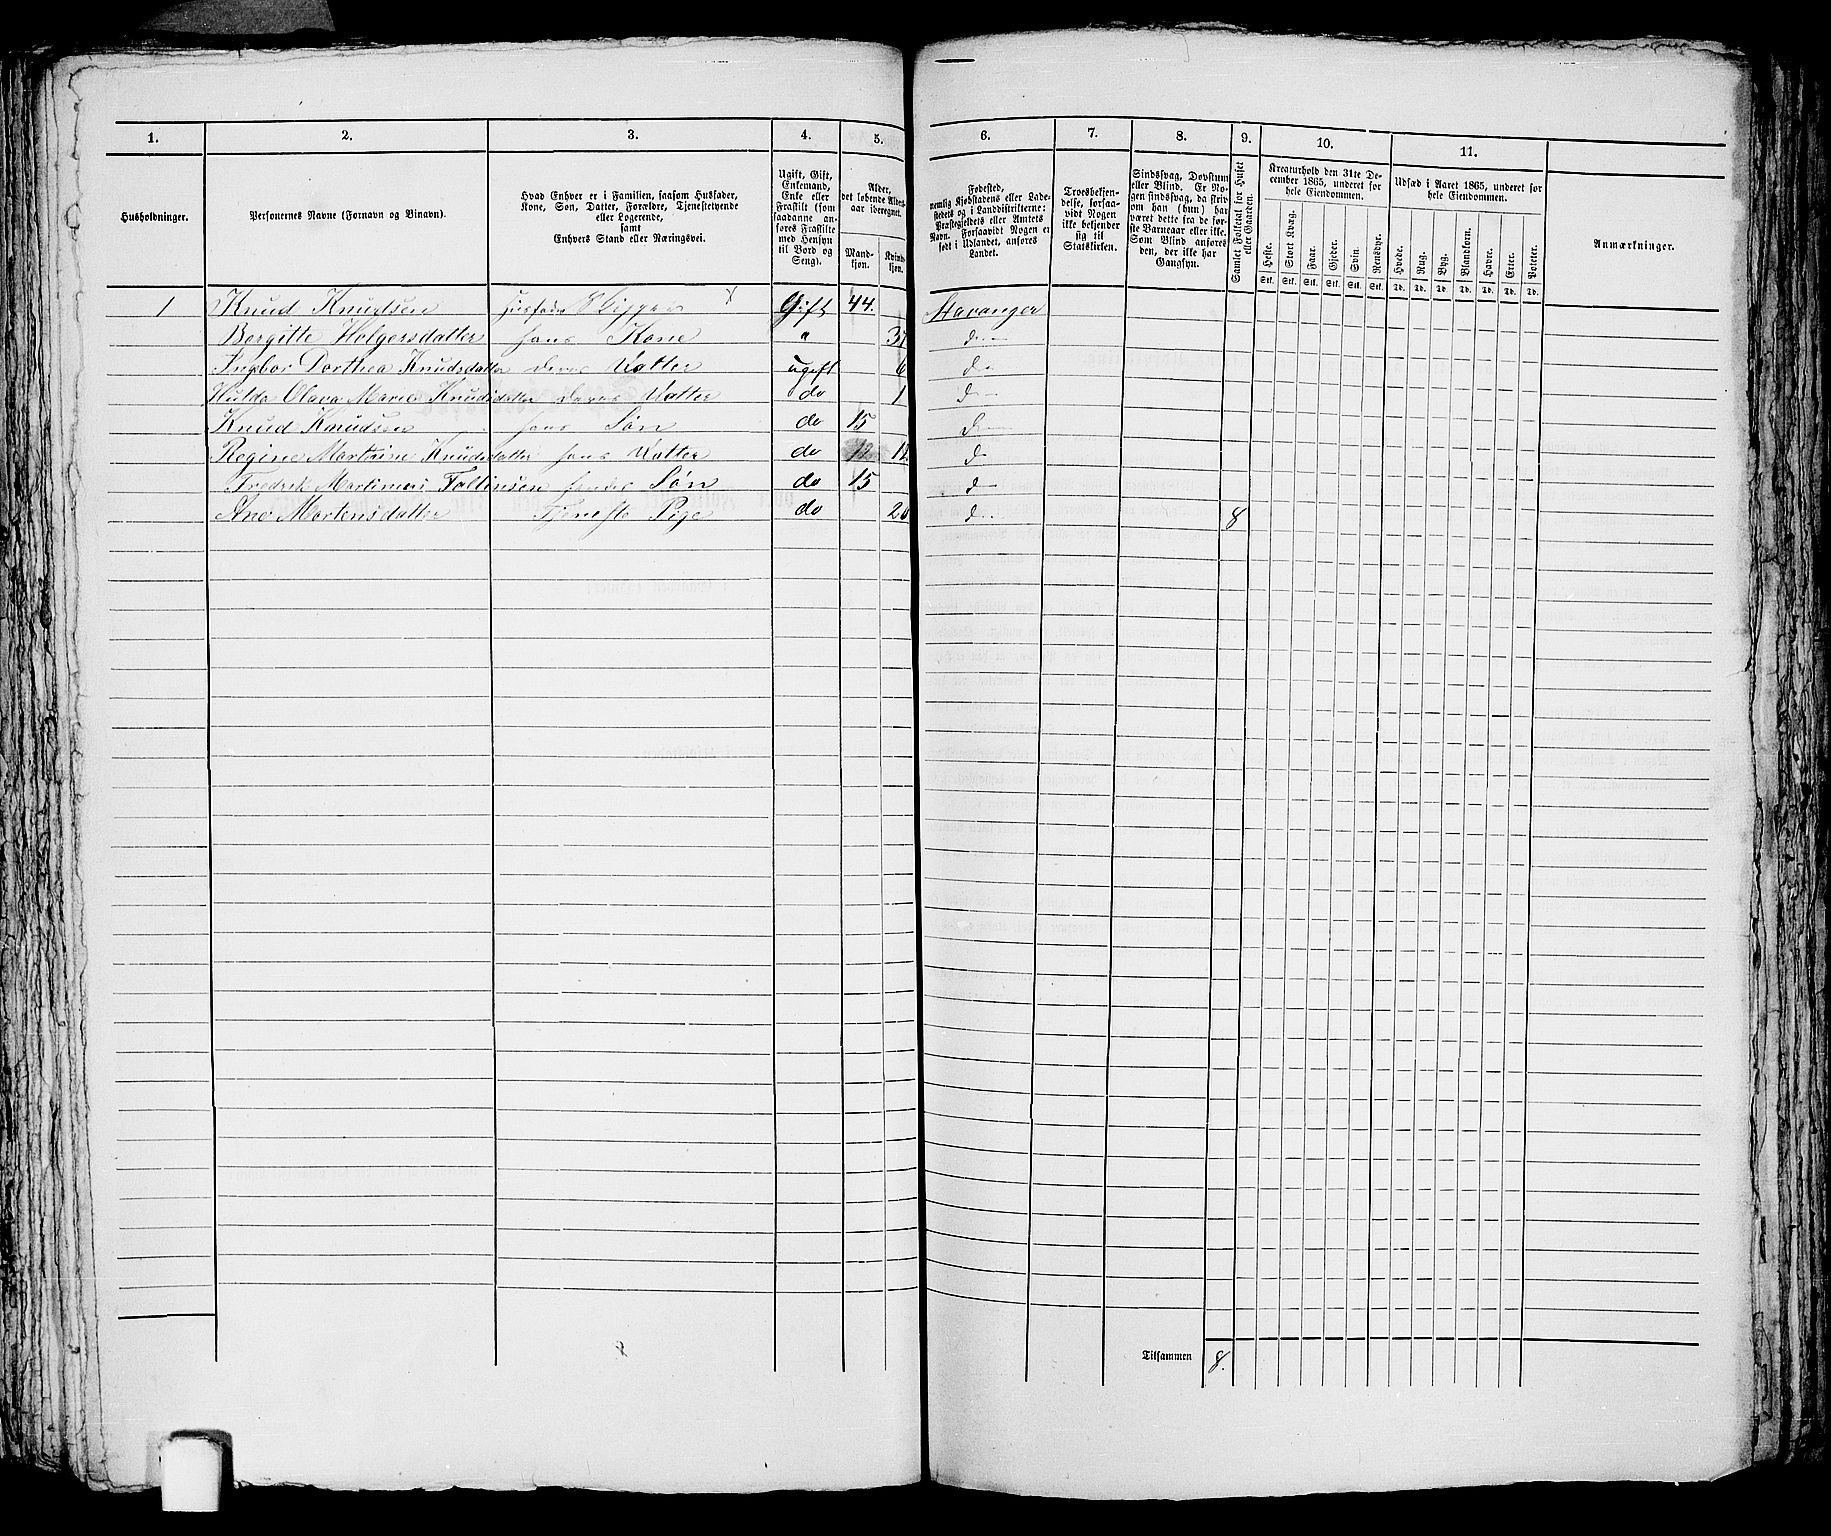 1. 2. 3. 4. 5. 6. 7. 8. 9. 10. 11.
Husholdninger.
Personernes Navne (Fornavn og Binavn).
Hvad Enhver er i Familien, saasom Husfader,
Kone, Søn, Datter, Forældre, Tjenestetyende
eller Logerende,
samt
Enhvers Stand eller Næringsvei.
Ugift, Gift,
Enkemand,
Enke eller
Fraskilt (som
saadanne an-
føres Fraskilte
med Hensyn
til Bord og
Seng).
Alder,
det løbende Alders-
aar iberegnet.
Mand-
kjøn.
Kvind-
kjøn.
Fødested,
nemlig Kjøbstadens eller Lade-
stedets og i Landdistrikterne:
Præstegjeldets eller Amtets
Navn. Forsaavidt Nogen er
født i Udlandet, anføres
Landet.
Troesbekjen-
delse, forsaa-
vidt Nogen
ikke bekjender
sig til
Statskirken.
Sindssvag, Døvstum
eller Blind. Er No-
gen sindssvag, da skriv
om han (hun) har
været dette fra de før-
ste Barneaar eller ikke.
Som Blind anføres
den, der ikke har
Gangsyn.
Samlet Folketal for Huset
eller Gaarden.
Kreaturhold den 31te De-
cember 1865, underet for
hele Eiendommen.
Heste. Stort Kvæg. Faar. Gjeder. Svin. Rensdyr.
Stk. Stk. Stk. Stk. Stk. Stk.
Udsæd i Aaret 1865, underet for
hele Eiendommen.
Hvede. Rug. Byg. Blandkorn. Havre. Erter. Poteter.
Td. Td. Td. Td. Td. Td. Td.
Anmærkninger.
1 Knud Knudsen Husfader Skipper x Gift 44. Stavanger
Bergitte Holgersdatter hans Kone " 37 do
Ingbor Dorthea Knudsdatter deres Datter ugift 6 do
Hulda Olava Marie Knudsdatter deres Datter do 1 do
Knud Knudsen hans Søn do 15 do
Regine Martine Knudsdatter hans Datter do 12 do
Fredrik Martinus Søn do 15 do
Ane Mortensdatter Tjeneste Pige do 20 do 8
Tilsammen 8.